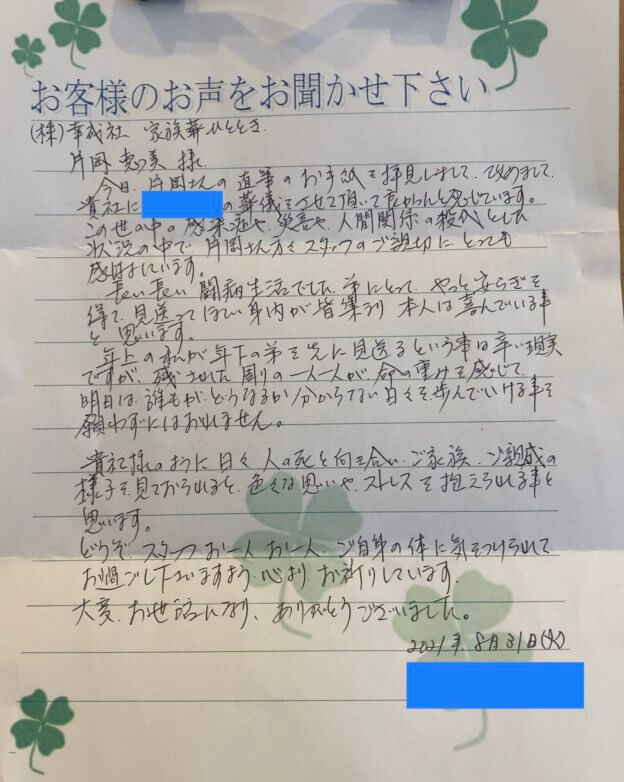 お客様のお声をお聞かせ下さい
(株)幸成社 家族葬ひととき
片岡 恵美 様
今日、片岡さんの直筆のお手紙を拝見しまして、改めまして、
貴社に の葬儀をさせて頂いて良かったと感じています。
この世の中の感染症や、災害や、人間関係の殺伐とした
状況の中で、片岡さん方々スタッフのご親切にとっても
感謝しています。
長い長い闘病生活でした弟にとって、やっと安らぎを
得て、見送ってほしい身内が皆集まり 本人は喜んでいる事
と思います。
年上の私が年下の弟を先に見送るという事は辛い現実
ですが、残された周りの一人一人が、命の重みを感じて、
明日は、誰もが、どうなるか分からない日々を歩んでいける事を
願わずにはおれません。
貴社様のように日々、人の死と向き合い、ご家族、ご親戚の
様子を見ておられると、色々な思いや、ストレスを抱えられる事と
思います。
どうぞ、スタッフお一人お一人、ご自身の体に気をつけられて
お過ごし下さいますよう、心よりお祈りしています。
大変、お世話になり、ありがとうございました。
2021年 8月31日(火)